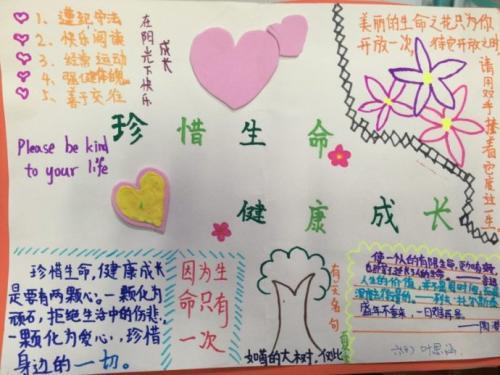 1、遵纪守法
2、快乐阅读
3、经常运动
4、强健体魄
5、善于交往
在阳光下快乐
成长
美丽的生命之花只为你
开放一次,
请用双手接着它度这一生
珍惜生命
健康成长
Please be kind
to your life
珍惜生命,健康成长
是要有两颗心:一颗化为
顽石,拒绝生活中的伤悲,
一颗化为爱心,珍惜
身边的一切。
因为生
命只有
一次
如茵的大树,
有关名句
使一个人的有限生命,更加有效
人生的价值,并不是用时间,
列夫·托尔斯泰
盛年不重来,一日难再晨。